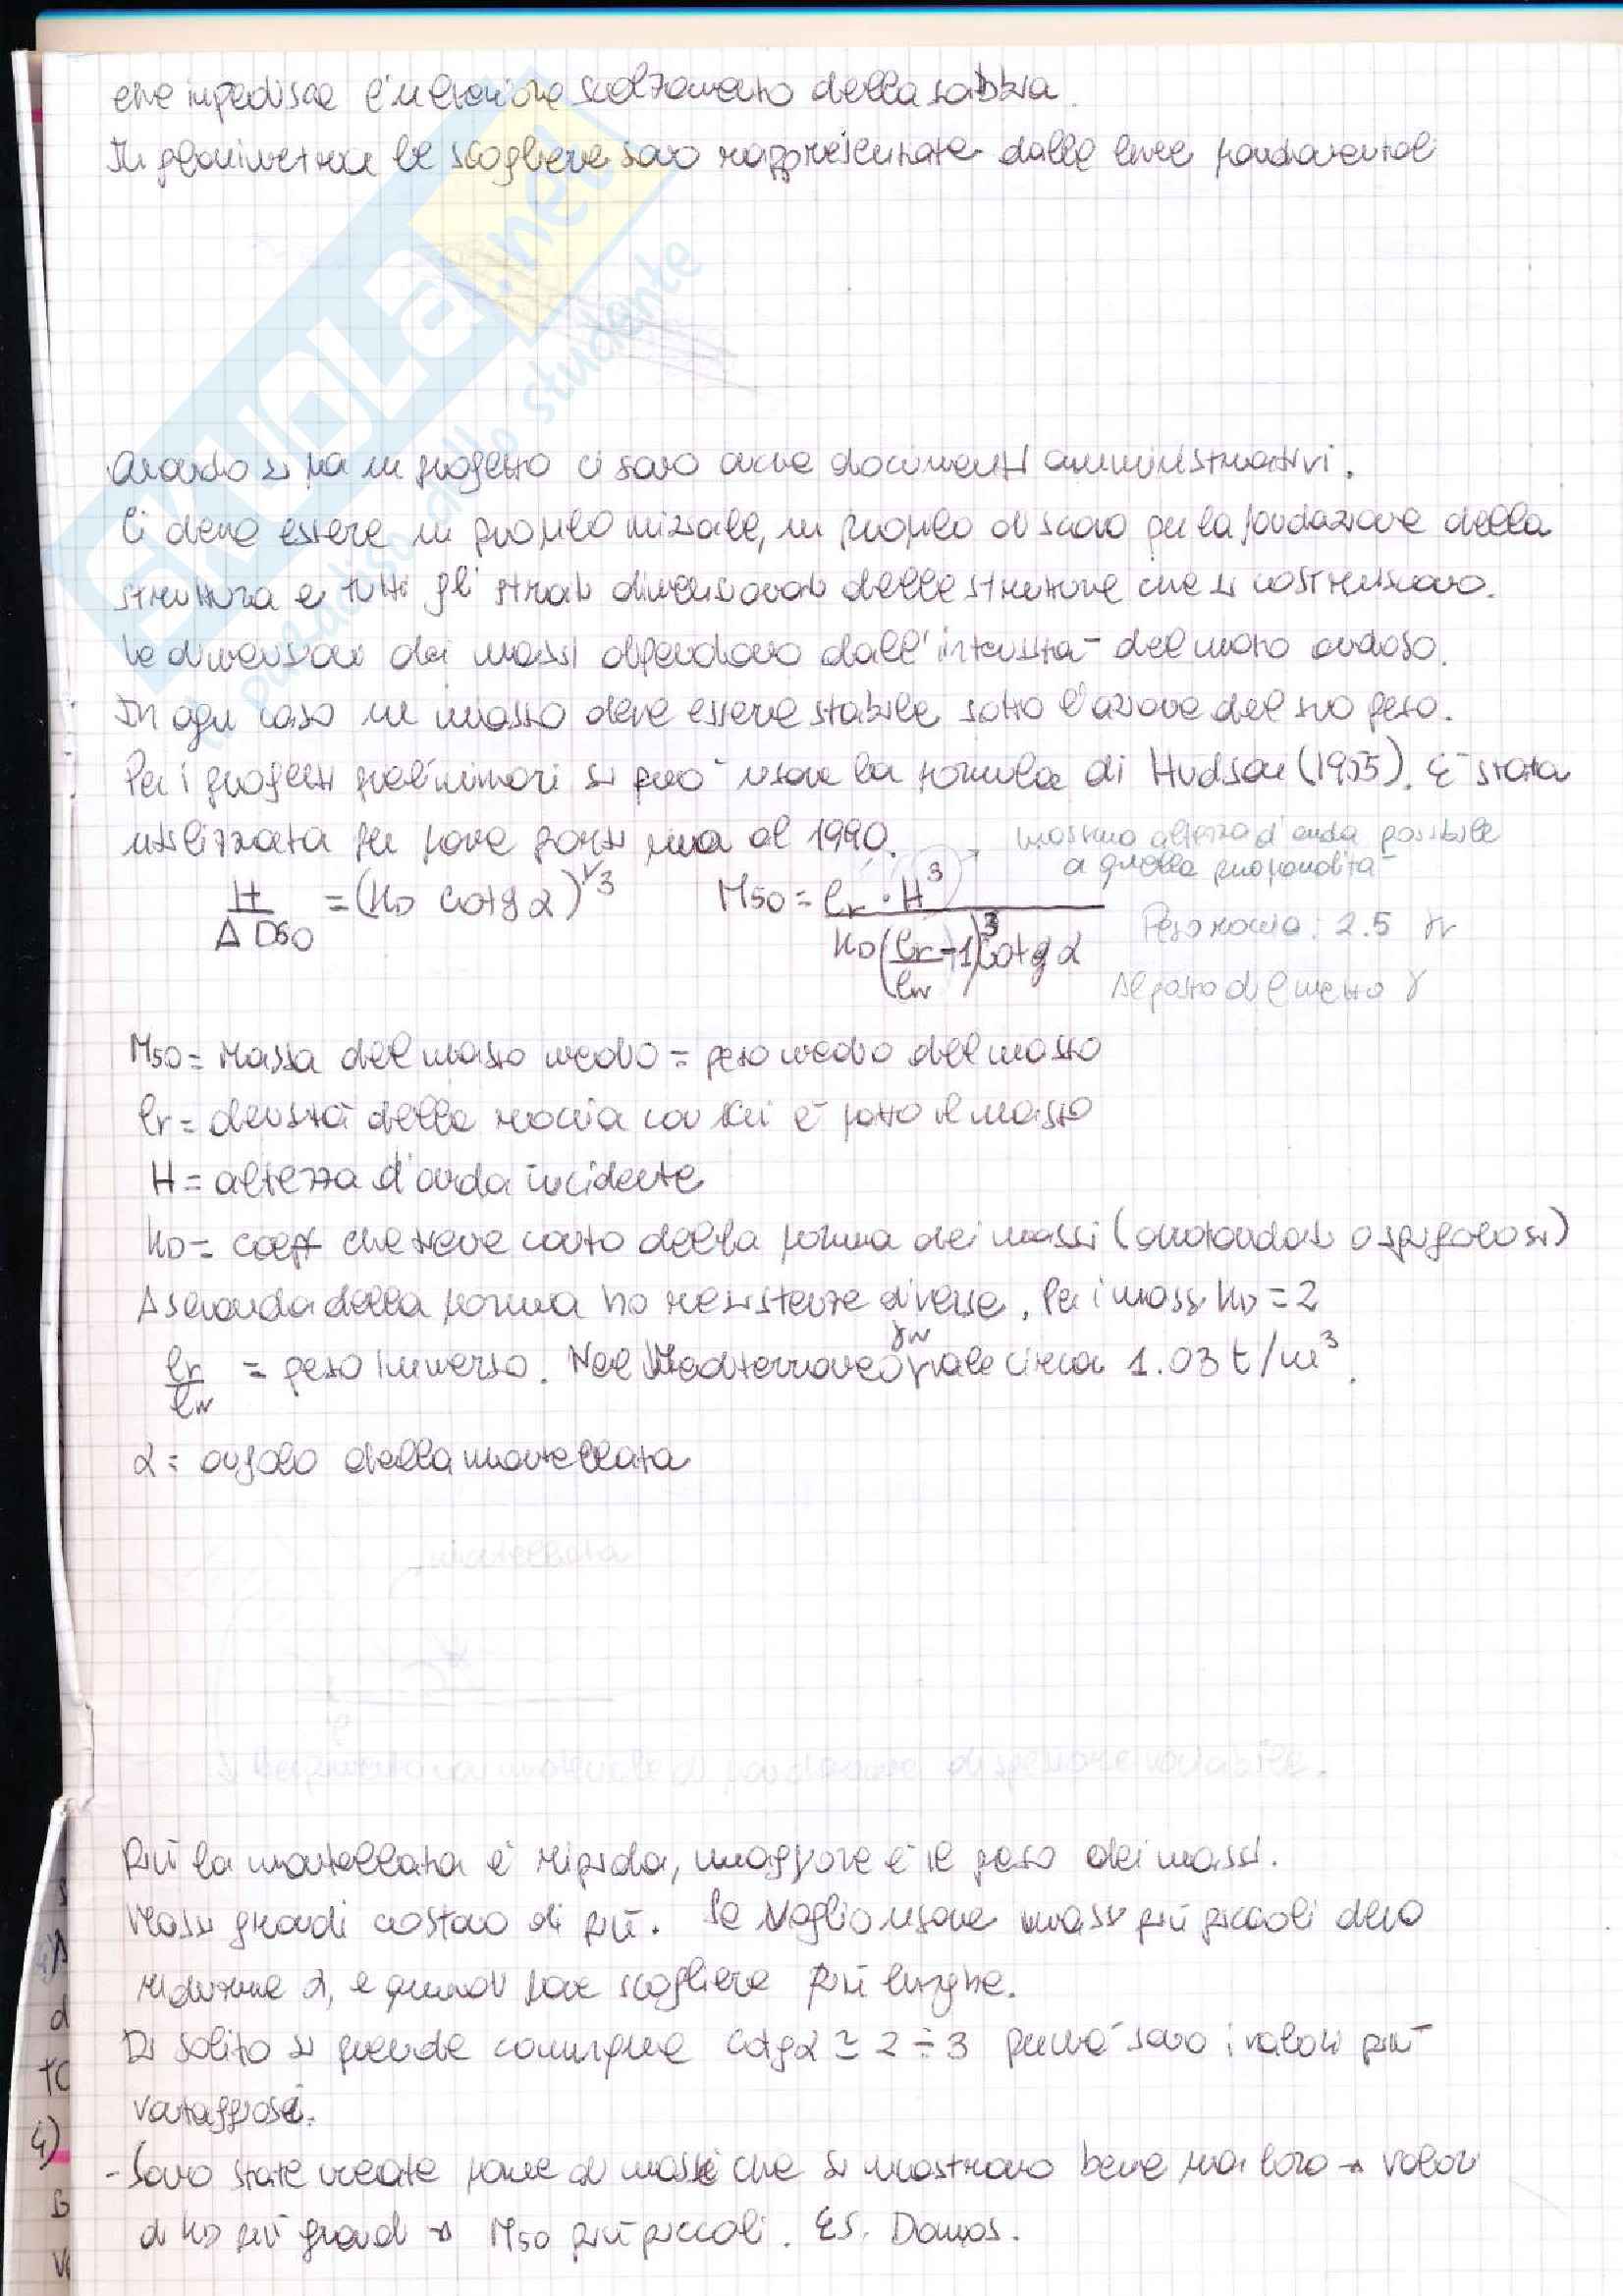 che impedisce l'ulteriore scalzamento della sabbia.
In planimetria le scogliere sono rappresentate dalle linee fondamentali
SKUOLA.net
il paradiso dello studente
Quando si ha un progetto ci sono anche documenti amministrativi.
Ci deve essere un profilo iniziale, un profilo di scavo per la fondazione della
struttura e tutti gli strati dimensionati delle strutture che si costruiscono.
Le dimensioni dei massi dipendono dall'intensità del moto ondoso.
In ogni caso un masso deve essere stabile sotto l'azione del suo peso.
Per i progetti preliminari si può usare la formula di Hudson (1955). È stata
utilizzata per fare porti fino al 1990.
massima altezza d'onda possibile
a quella profondità
H / Δ D50 = (KD cotg α)^1/3   M50 = ρr · H^3 / KD (ρr/ρw - 1)^3 cotg α
Peso roccia: 2.5 γr
Al posto di ρ metto γ
M50 = Massa del masso medio = peso medio del masso
ρr = densità della roccia con cui è fatto il masso
H = altezza d'onda incidente
KD = coeff che tiene conto della forma dei massi (arrotondati o spigolosi)
A seconda della forma ho resistenze diverse. Per i massi KD = 2
ρr/ρw = peso immerso. Nel Mediterraneo γw vale circa 1.03 t/m^3.
α = angolo della mantellata
mantellata
di spessore variabile.
Più la mantellata è ripida, maggiore è il peso dei massi.
Massi grandi costano di più. Se voglio usare massi più piccoli devo
ridurre α, e quindi fare scogliere più lunghe.
Di solito si prende comunque cotg α ≃ 2 ÷ 3 perché sono i valori più
vantaggiosi.
- Sono state create forme di massi che si incastrano bene tra loro → valori
di KD più grandi → M50 più piccoli. ES.